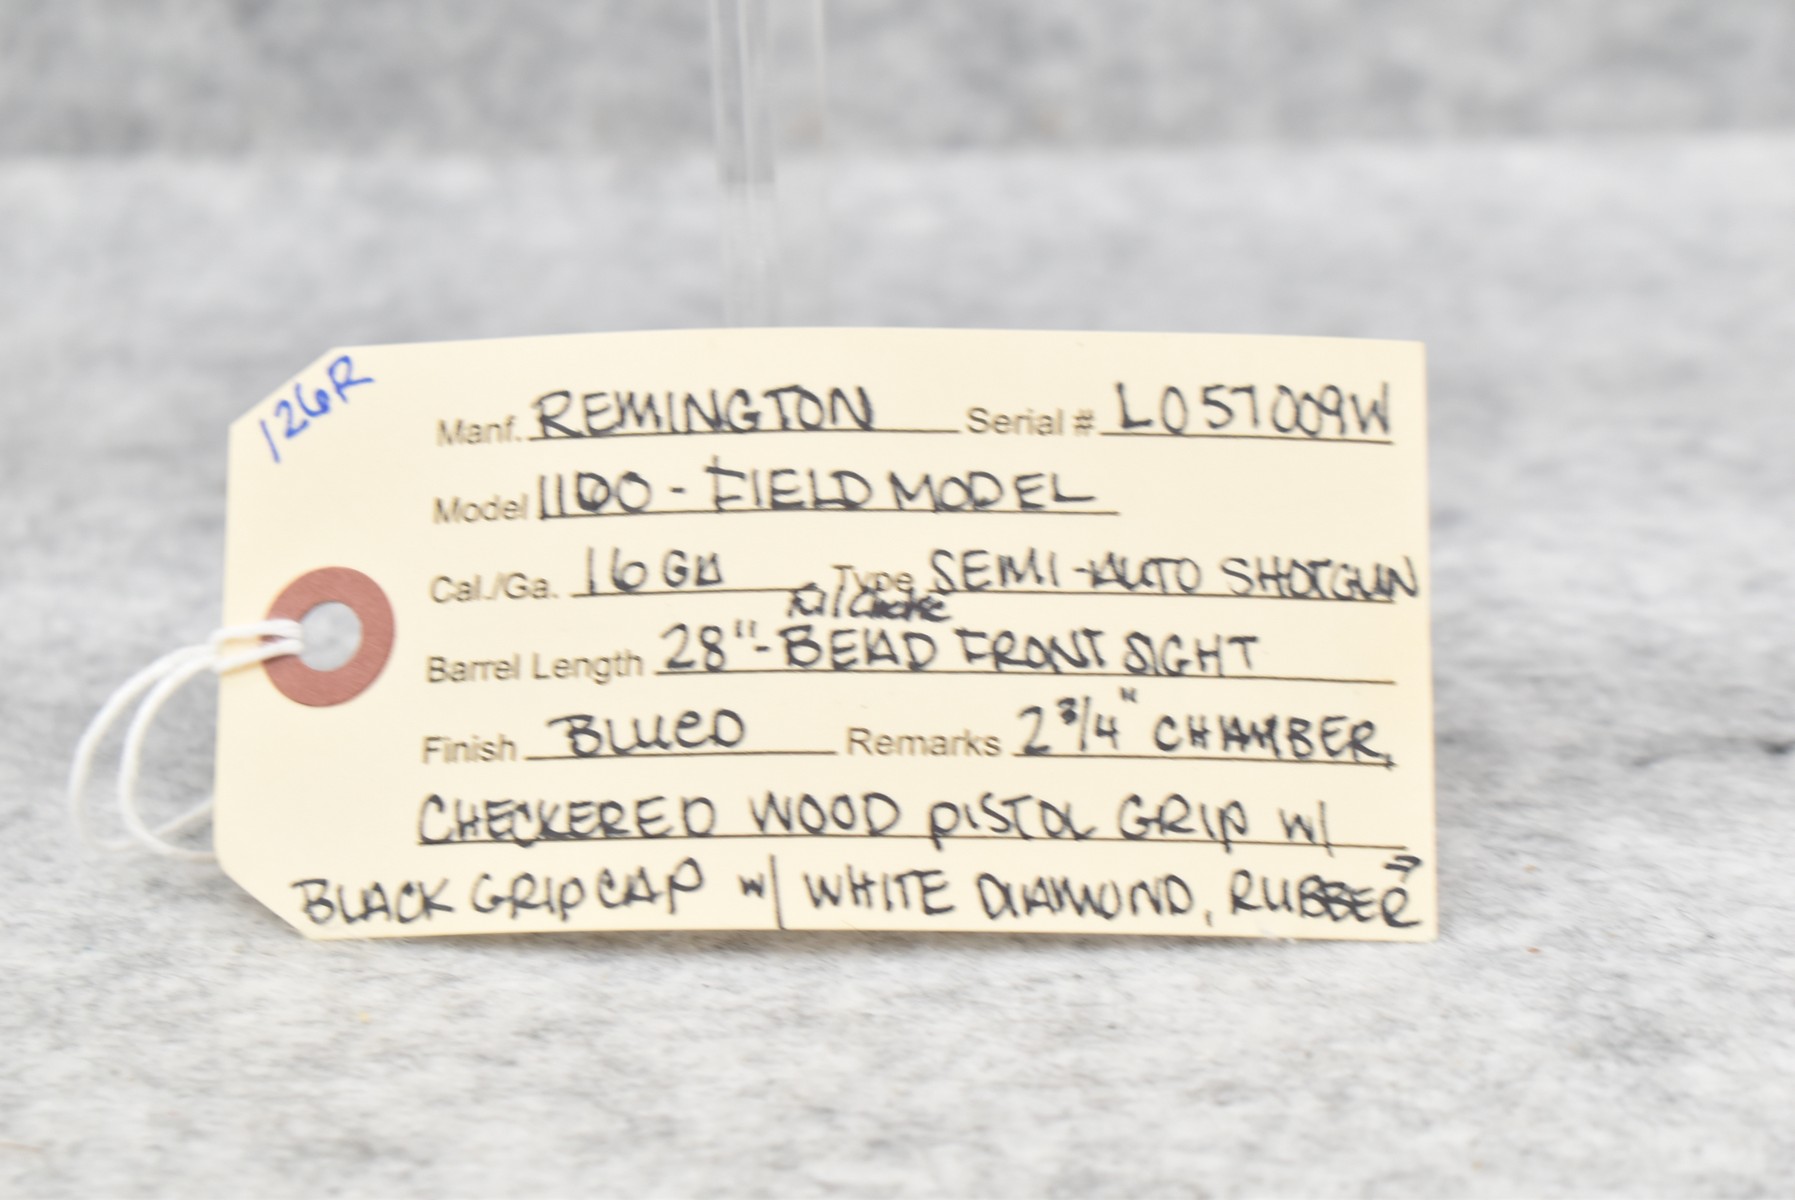 126R
Manf. REMINGTON Serial # L057009W
Model 1100 - FIELD MODEL
Cal./Ga. 16 GA Type SEMI-AUTO SHOTGUN
Full Choke
Barrel Length 28" - BEAD FRONT SIGHT
Finish BLUED Remarks 2 3/4" CHAMBER,
CHECKERED WOOD PISTOL GRIP W/
BLACK GRIP CAP W/ WHITE DIAMOND, RUBBER →